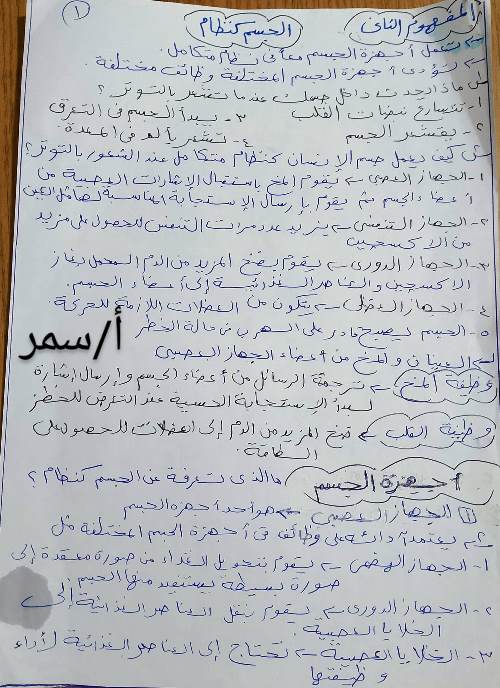 ١
المفهوم الثاني الجسم كنظام
← تعمل أجهزة الجسم معاً في نظام متكامل.
← تؤدي أجهزة الجسم المختلفة وظائف مختلفة.
س ماذا يحدث داخل جسمك عندما تشعر بالتوتر؟
١- تتسارع نبضات القلب ٣- يبدأ الجسم في التعرق
٢- يقشعر الجسم ٤- تشعر بألم في المعدة.
س كيف يعمل جسم الإنسان كنظام متكامل عند الشعور بالتوتر؟
١- الجهاز العصبي ← يقوم المخ باستقبال الإشارات العصبية من
أعضاء الجسم ثم يقوم بإرسال الاستجابة المناسبة
٢- الجهاز التنفسي ← يزيد عدد مرات التنفس للحصول على مزيد
من الأكسجين
٣- الجهاز الدوري ← يقوم بضخ المزيد من الدم المحمل بغاز
الاكسجين والعناصر الغذائية إلى أعضاء الجسم.
٤- الجهاز العضلي ← يتكون من العضلات اللازمة للحركة.
٥- الجسم يصبح قادر على الهرب في حالة الخطر
أ/سمر
← العينان والمخ من أعضاء الجهاز العصبي
وظيفة المخ ← ترجمة الرسائل من أعضاء الجسم وإرسال إشارة
لبدأ الإستجابة الحسية عند التعرض للخطر
وظيفة القلب ← ضخ المزيد من الدم إلى العضلات للحصول على
الطاقة.
أجهزة الجسم ما الذي تعرفه عن الجسم كنظام؟
١ الجهاز العصبي ← هو أحد أجهزة الجسم
← يعتمد أدائه على وظائف في أجهزة الجسم المختلفة مثل
١- الجهاز الهضمي ← يقوم بتحويل الغذاء من صورة معقدة إلى
صورة بسيطة يستفيد منها الجسم
٢- الجهاز الدوري ← يقوم بنقل العناصر الغذائية إلى
الخلايا العصبية.
٣- الخلايا العصبية ← تحتاج إلى العناصر الغذائية لأداء
وظيفتها